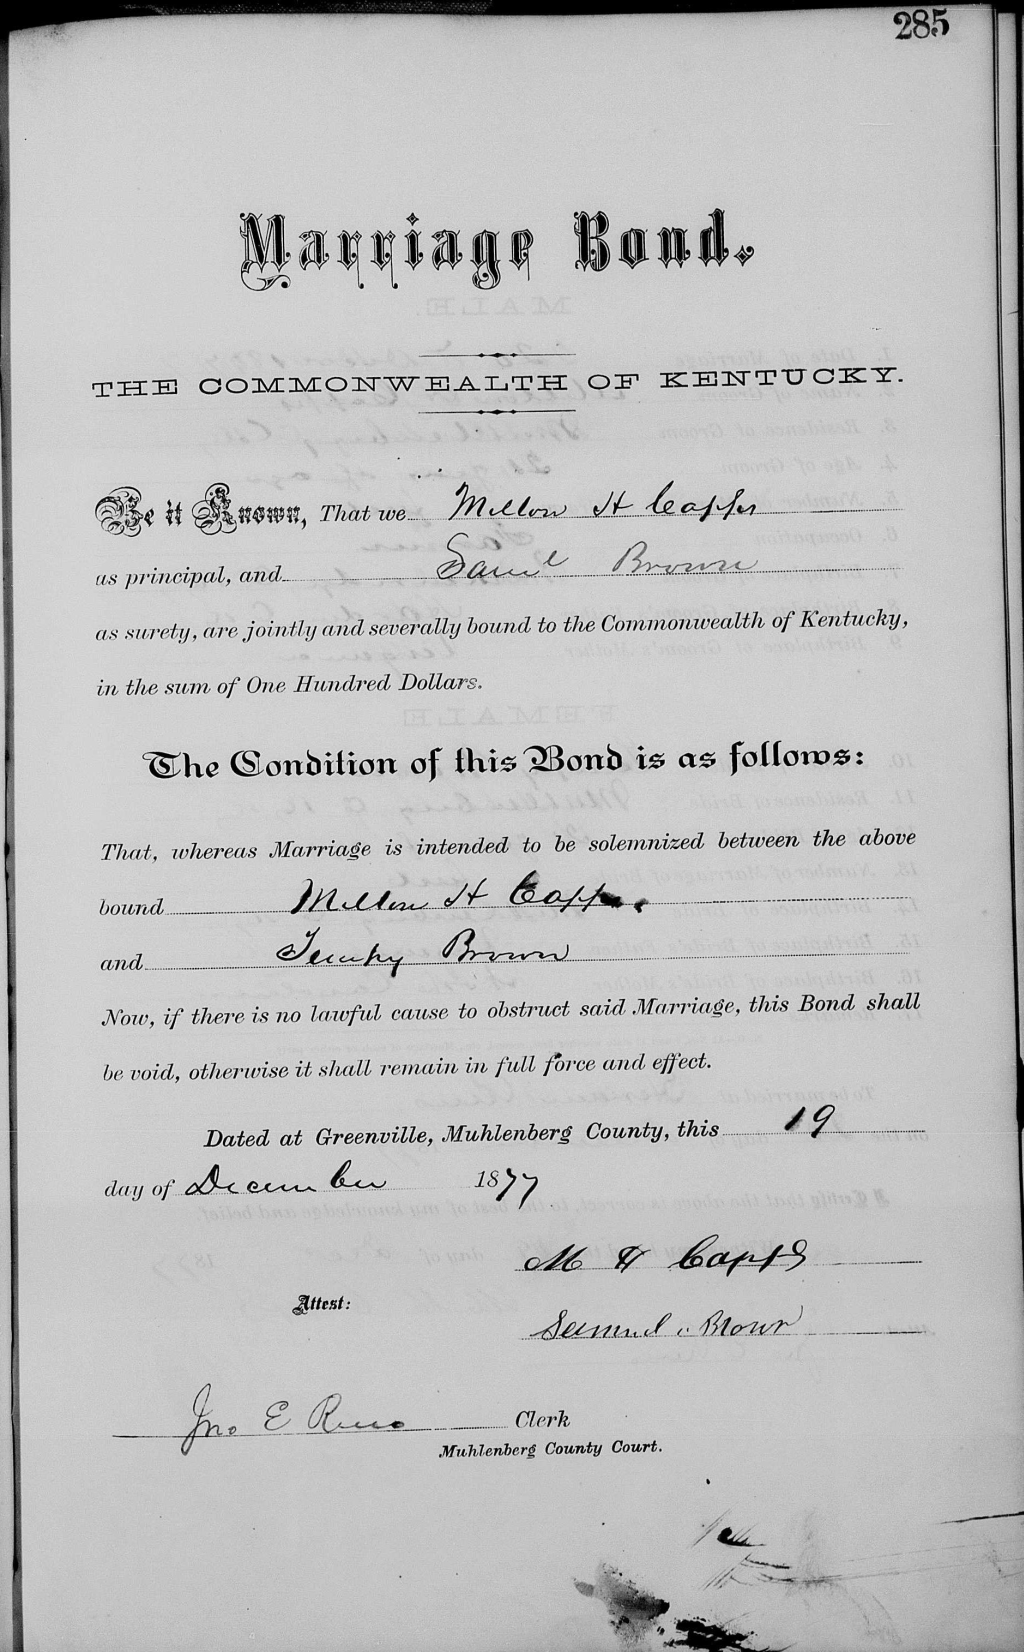 285
Marriage Bond.
THE COMMONWEALTH OF KENTUCKY.
Be it Known, That we Milton H Capps
as principal, and Saml Brown
as surety, are jointly and severally bound to the Commonwealth of Kentucky,
in the sum of One Hundred Dollars.
The Condition of this Bond is as follows:
That, whereas Marriage is intended to be solemnized between the above
bound Milton H Capps
and Brown
Now, if there is no lawful cause to obstruct said Marriage, this Bond shall
be void, otherwise it shall remain in full force and effect.
Dated at Greenville, Muhlenberg County, this 19
day of December 1877
M H Capps
Attest:
Samuel Brown
Jno E Reno Clerk
Muhlenberg County Court.